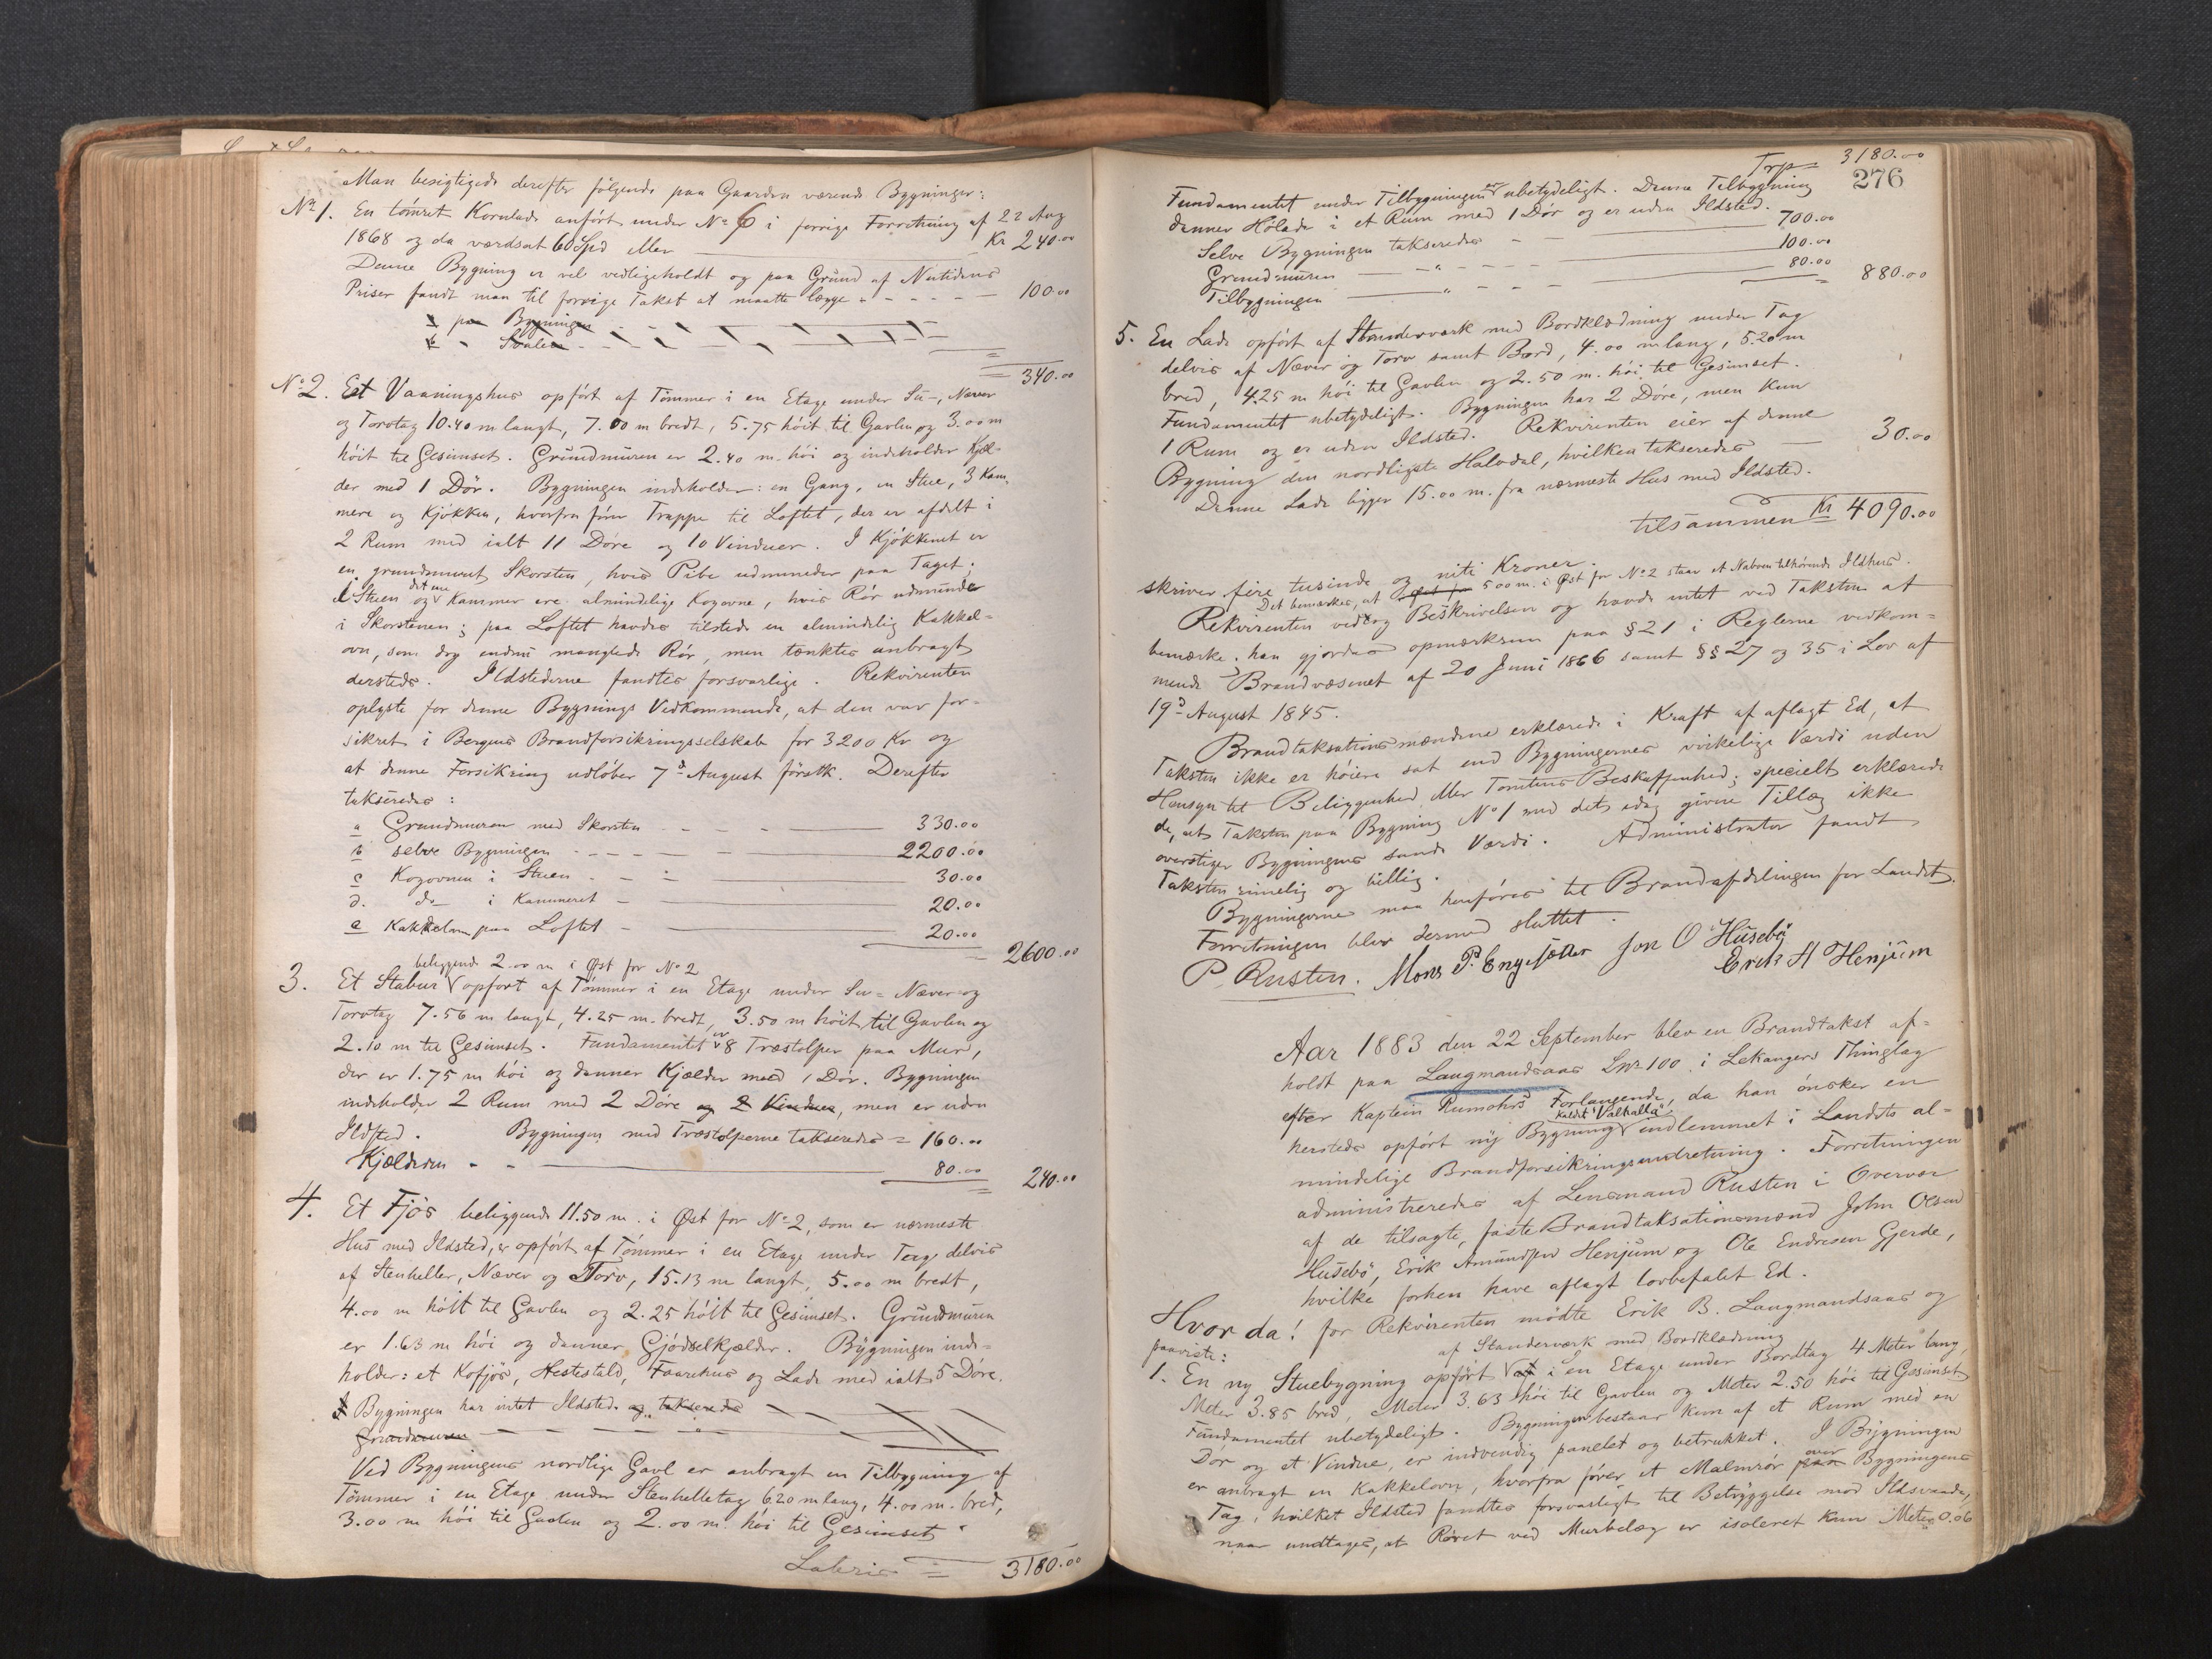 Man besigtigede derefter følgende paa Gaarden værende Bygninger:
No 1. En tømret Kornlade anført under No 6 i forrige Forretning af 22 Aug
1868 og da værdsat 60 Spd eller Kr 240.00
Denne Bygning er vel vedligeholdt og paa Grund af Nutidens
Priser fandt man til forrige Takst at maatte lægge 100.00
a paa Bygningen
b " Svalen
340.00
No 2. Et Vaaningshus opført af Tømmer i en Etage under Su-, Næver
og Torvtag 10.40 m langt, 7.00 m bredt, 5.75 høit til Gavlen og 3.00 m
høit til Gesimset. Grundmuren er 2.40 m. høi og indeholder Kjæl-
der med 1 Dör. Bygningen indeholder: en Gang, en Stue, 3 Kam-
mere og Kjøkken, hvorfra fører Trappe til Loftet, der er afdelt i
2 Rum med ialt 11 Döre og 10 Vinduer. I Kjøkkenet er
en grundmuret Skorsten, hvis Pibe udmunder paa Taget;
i Stuen og det ene Kammer ere almindelige Kogovne, hvis Rör udmunde
i Skorstenen; paa Loftet havdes tilstede en almindelig Kakkel-
ovn, som dog endnu manglede Rör, men tænktes anbragt
dersteds. Ildstederne fandtes forsvarlige. Rekvirenten
oplyste for denne Bygnings Vedkommende, at den var for-
sikret i Bergens Brandforsikringsselskab for 3200 Kr og
at denne Forsikring udløber 7de August förstk. Derefter
takseredes:
a Grundmuren med Skorsten 330.00
b selve Bygningen 2200.00
c Kogovnen i Stuen 30.00
d. do i Kammeret 20.00
e Kakkelovn paa Loftet 20.00
2600.00
beliggende 2.00 m i Øst for No 2
3. Et Stabur opført af Tømmer i en Etage under Su- Næver og
Torvtag 7.56 m langt, 4.25 m. bredt, 3.50 m høit til Gavlen og
2.10 m til Gesimset. Fundamentet er 8 Træstolper paa Mur,
der er 1.75 m høi og danner Kjælder med 1 Dör. Bygningen
indeholder 2 Rum med 2 Döre og 2 Vinduer, men er uden
Ildsted. Bygningen med Træstolperne takseredes = 160.00
Kjælderen 80.00
240.00
4. Et Fjös beliggende 11.50 m. i Øst for No 2, som er nærmeste
Hus med Ildsted, er opført af Tømmer i en Etage under Tag delvis
af Stenheller, Næver og Torv, 15.13 m langt, 5.00 m bredt,
4.00 m høit til Gavlen og 2.25 høit til Gesimset. Grundmuren
er 1.63 m høi og danner Gjødselkjælder. Bygningen inde-
holder: et Kofjøs, Hestestald, Faarehus og Lade med ialt 5 Döre.
Bygningen har intet Ildsted og takseredes
Grundmuren
Ved Bygningens nordlige Gavl er anbragt en Tilbygning af
Tømmer i en Etage under Stenhelletag 6.20 m lang, 4.00 m. bred,
3.00 m høi til Gavlen og 2.00 m. høi til Gesimset.
Lateris 3180.00
Trp 3180.00
276
Fundamentet under Tilbygningen er ubetydeligt. Denne Tilbygning
danner Hølade i et Rum med 1 Dör og er uden Ildsted.
Selve Bygningen takseredes 700.00
Grundmuren 100.00
Tilbygningen 80.00
880.00
5. En Lade opført af Standerværk med Bordklædning under Tag
delvis af Næver og Torv samt Bord, 4.00 m lang, 5.20 m
bred, 4.25 m høi til Gavlen og 2.50 m. høi til Gesimset.
Fundamentet ubetydeligt. Bygningen har 2 Döre, men kun
1 Rum og er uden Ildsted. Rekvirenten eier af denne
Bygning den nordligste Halvdel, hvilken takseredes 30.00
Denne Lade ligger 15.00 m. fra nærmeste Hus med Ildsted.
tilsammen Kr 4090.00
skriver fire tusinde og niti Kroner.
Det bemærkes, at 5.00 m. i Øst for No 2 staar et Naboen tilhørende Ildhus.
Rekvirenten vedtog Beskrivelsen og havde intet ved Taksten at
bemærke. han gjordes opmærksom paa § 21 i Reglerne vedkom-
mende Brandvæsenet af 20 Juni 1866 samt §§ 27 og 35 i Lov af
19de August 1845.
Brandtaksationsmændene erklærede i Kraft af aflagt Ed, at
Taksten ikke er høiere sat end Bygningernes virkelige Værdi uden
Hensyn til Beliggenhed eller Tomtens Beskaffenhed; specielt erklærede
de, at Taksten paa Bygning No 1 med det idag givne Tillæg ikke
overstiger Bygningens sande Værdi. Administrator fandt
Taksten rimelig og billig.
Bygningerne maa henføres til Brandafdelingen for Landet.
Forretningen blev dermed sluttet.
P. Rusten. Mons P. Engesætter Jon O Husebö
Erik A Henjum
Aar 1883 den 22 September blev en Brandtakst af-
holdt paa Laugmandsaas Lnr 100 i Lekangers Thinglag
efter Kaptein Rumohrs Forlangende, da han ønsker en
hersteds opført ny Bygning kaldet "Valhalla" indlemmet i Landets al-
mindelige Brandforsikringsindretning. Forretningen
administreredes af Lensmand Rusten i Overvær
af de tilsagte, faste Brandtaksationsmænd John Olsen
Husebö, Erik Amundsen Henjum og Ole Endresen Gjerde,
hvilke forhen have aflagt lovbefalet Ed.
Hvor da! for Rekvirenten mødte Erik B. Laugmandsaas og
paaviste:
af Standerværk med Bordklædning
1. En ny Stuebygning opført i en Etage under Bordtag 4 Meter lang,
Meter 3.85 bred, Meter 3.63 høi til Gavlen og Meter 2.50 høi til Gesimset
Fundamentet ubetydeligt. Bygningen bestaar kun af et Rum med en
Dör og et Vindue, er indvendig panelet og betrukket. I Bygningen
er anbragt en Kakkelovn, hvorfra fører et Malmrör paa over Bygningens
Tag, hvilket Ildsted fandtes forsvarligt til Betryggelse mod Ildsvaade,
naar undtages, at Röret ved Murbelæg er isoleret kun Meter 0.06